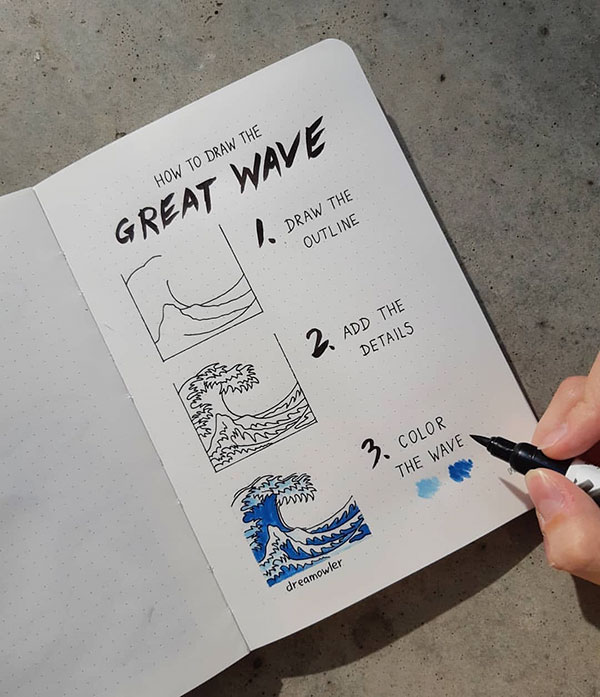 HOW TO DRAW THE
GREAT WAVE
1. DRAW THE
OUTLINE
2. ADD THE
DETAILS
3. COLOR
THE WAVE
dreamowler